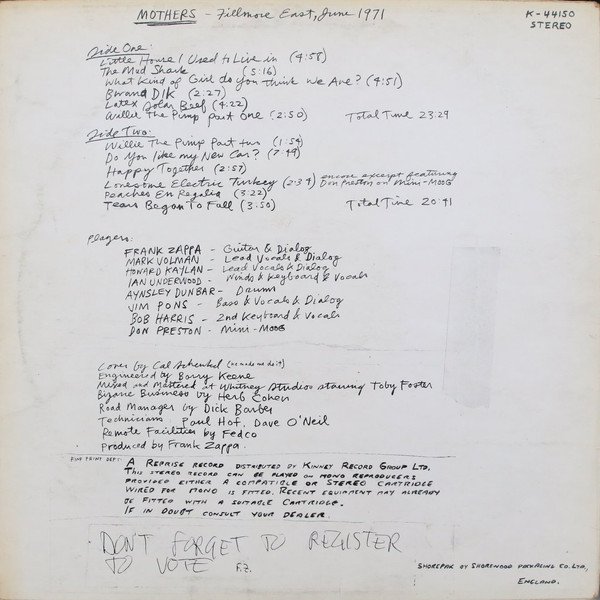 MOTHERS - Fillmore East, June 1971
K-44150
STEREO
Side One:
Little House I Used to Live in (4:58)
The Mud Shark (5:16)
What Kind of Girl do you think We Are? (4:51)
Bwana DIK (2:27)
Latex Solar Beef (4:22)
Willie The Pimp part One (2:50) Total Time 23:29
Side Two:
Willie The Pimp Part two (1:54)
Do You like my New Car? (7:49)
Happy Together (2:57)
Lonesome Electric Turkey (2:34) encore excerpt featuring
Don Preston on Mini-MOOG
Peaches En Regalia (3:22)
Tears Began To Fall (3:50) Total Time 20:41
Players:
FRANK ZAPPA - Guitar & Dialog
MARK VOLMAN - Lead Vocals & Dialog
HOWARD KAYLAN - Lead Vocals & Dialog
IAN UNDERWOOD - Winds & Keyboard & Vocals
AYNSLEY DUNBAR - Drums
JIM PONS - Bass & Vocals & Dialog
BOB HARRIS - 2nd Keyboard & Vocals
DON PRESTON - Mini-MOOG
Cover by Cal Schenkel (he made me do it)
Engineered by Barry Keene
Mixed and Mastered at Whitney Studios starring Toby Foster
Bizarre Business by Herb Cohen
Road Manager by Dick Barber
Technicians Paul Hof, Dave O'Neil
Remote Facilities by Fedco
Produced by Frank Zappa.
FINE PRINT DEPT:
A REPRISE RECORD DISTRIBUTED BY KINNEY RECORD GROUP LTD.
THIS STEREO RECORD CAN BE PLAYED ON MONO REPRODUCERS
PROVIDED EITHER A COMPATIBLE OR STEREO CARTRIDGE
WIRED FOR MONO IS FITTED. RECENT EQUIPMENT MAY ALREADY
BE FITTED WITH A SUITABLE CARTRIDGE.
IF IN DOUBT CONSULT YOUR DEALER.
DON'T FORGET TO REGISTER
TO VOTE F.Z.
SHOREPAK BY SHOREWOOD PACKAGING CO. LTD.,
ENGLAND.